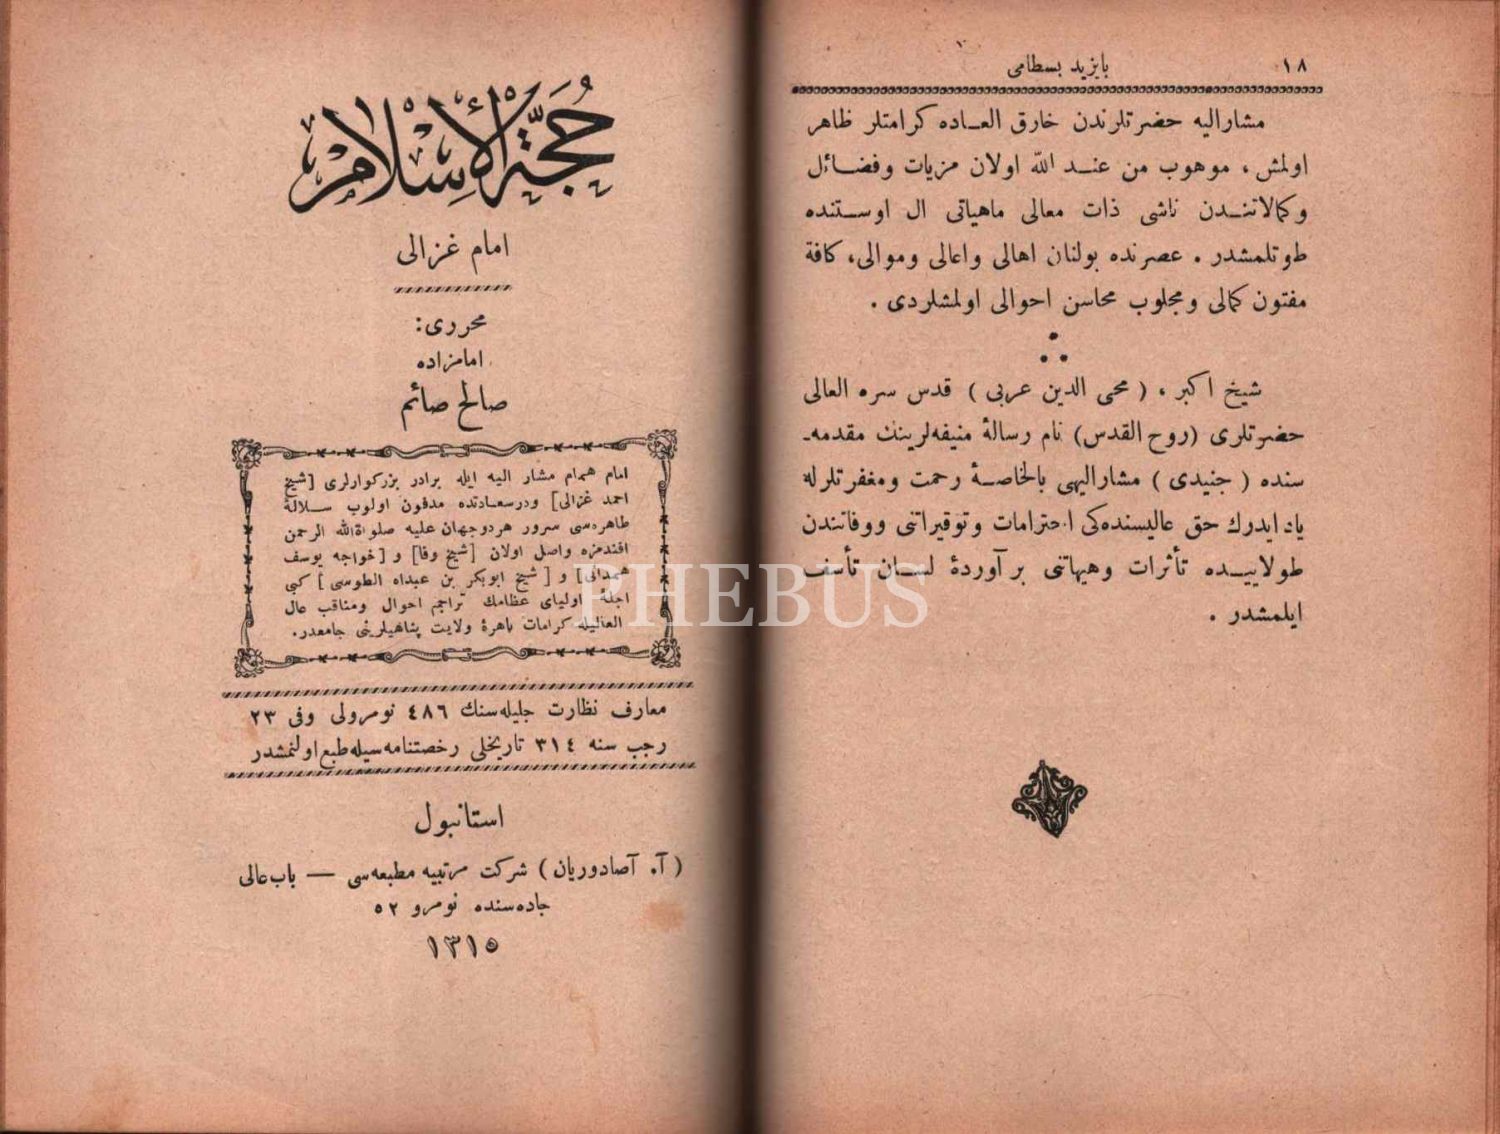 ١٨ بایزید بسطامی
مشارالیه حضرتلرندن خارق العاده کرامتلر ظاهر
اولمش ، موهوب من عند الله اولان مزیات وفضائل
وکالاتندن ناشی ذات معالی ماهیاتی ال اوستنده
طوتلمشدر . عصرنده بولنان اهالی واعالی وموالی، کافة
مفتون کمالی ومجلوب محاسن احوالی اولمشلردی .
شیخ اکبر ، ( محی الدین عربی ) قدس سره العالی
حضرتلری (روح القدس) نام رسالهٔ منیفه‌لرینك مقدمه‌ـ
سنده ( جنیدی ) مشارالیهی بالخاصه رحمت ومغفرتلرله
یاد ایدرك حق عالیسنده‌کی احترامات وتوقیراتنی ووفاتندن
طولاییده تأثرات وهیهاتنی بر آوردهٔ لسان تأسف
ایلمشدر .
حُجَّةُ الْإِسْلَام
امام غزالی
محرری:
امامزاده
صالح صائم
امام همام مشار الیه ایله برادر بزرکوارلری [شیخ
احمد غزالی] ودرسعادتده مدفون اولوب سلالهٔ
طاهره‌سی سرور هردوجهان علیه صلواة‌الله الرحمن
افندمزه واصل اولان [شیخ وفا] و [خواجه یوسف
همدانی] و [شیخ ابوبکر بن عبداه الطوسی] کبی
اجلهٔ اولیای عظامك تراجم احوال ومناقب عال
العالیله کرامات باهرهٔ ولایت پناهیلرینی جامعدر.
معارف نظارت جلیله‌سنك ٤٨٦ نومرولی وفی ٢٣
رجب سنه ٣١٤ تاریخلی رخصتنامه‌سیله طبع اولنمشدر
استانبول
( آ. آصادوریان ) شرکت مرتبیه مطبعه‌سی — باب عالی
جاده‌سنده نومرو ٥٢
١٣١٥
PHEBUS